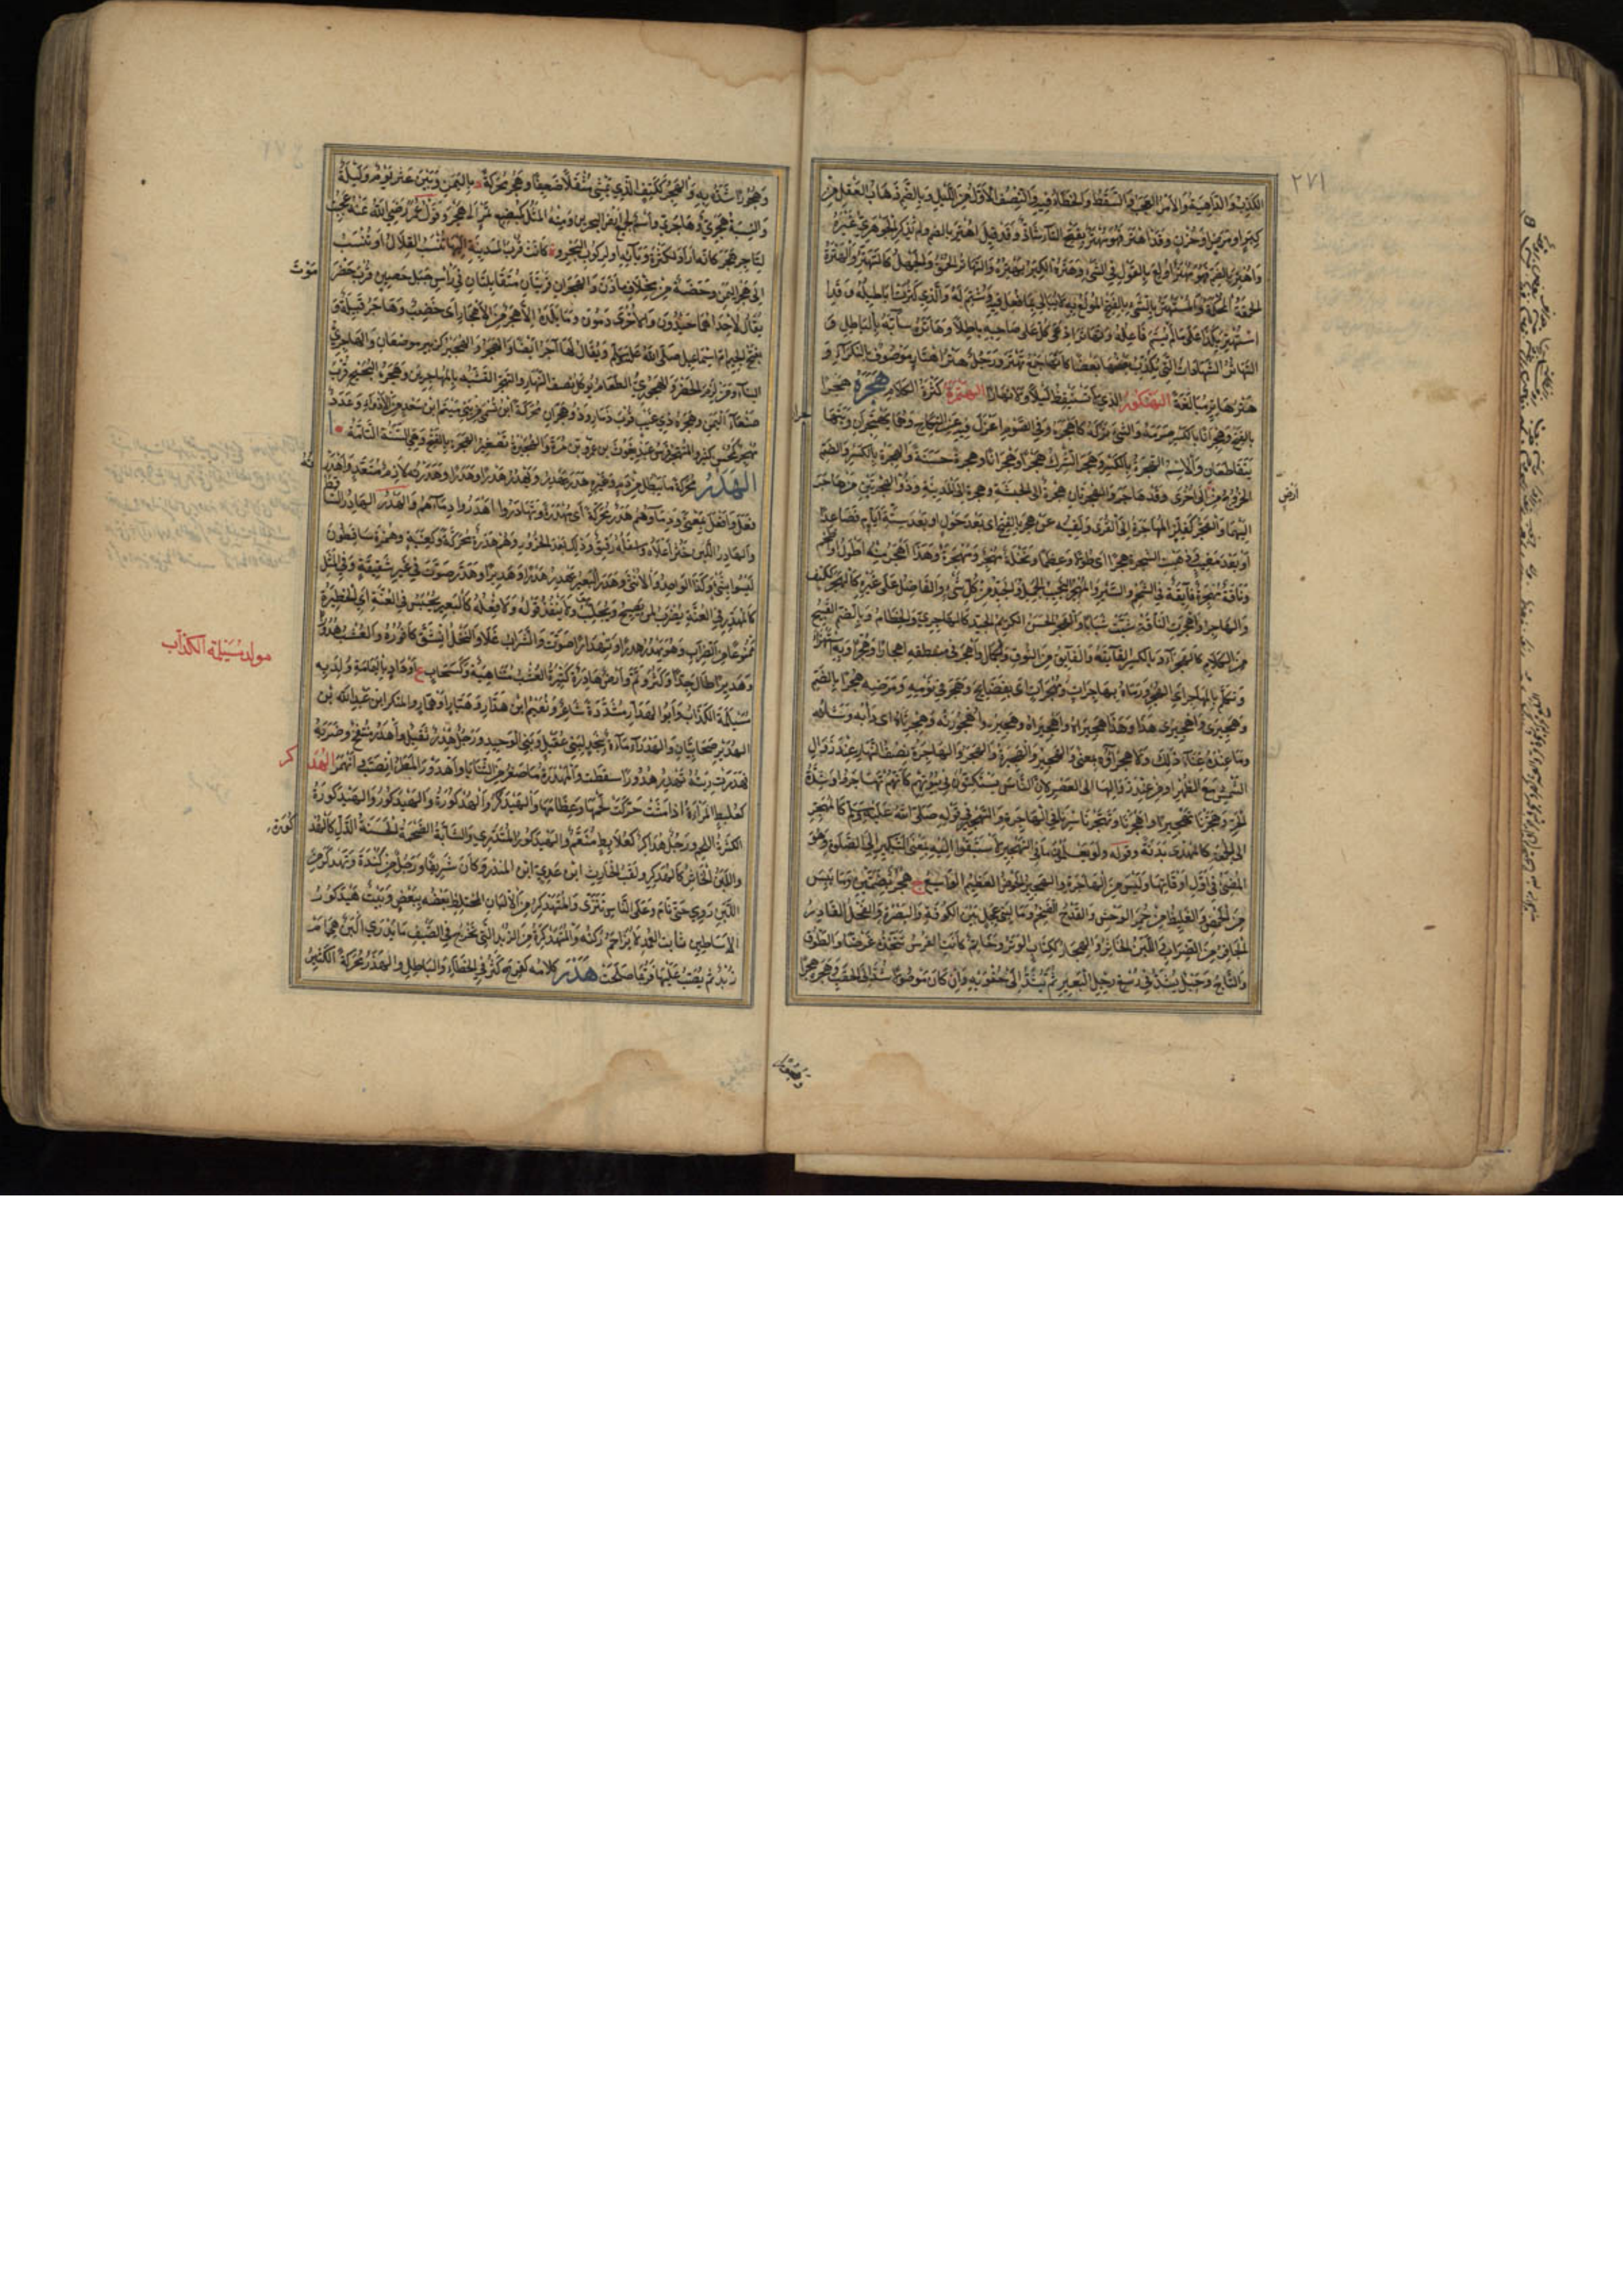 ٢٧١
الكذب والداهية والأمر العجب والسقط والخطأ فيه والنصف الأول من الليل وبالضم ذهاب العقل من
كبر او مرض او حزن وقد اهتر فهو مهتر بفتح التاء شاذ وقد قيل اهتر بالضم ولم يذكر الجوهري غيره
واهتر بالضم فهو مهتر اولع بالقول في الشيء وهتره الكبر يهتره والتهتار الحمق والجهل كالتهتر والهترة
الحمقة المحكمة والمستهتر بالشيء بالفتح المولع به لا يبالي بما فعل فيه وشتم له والذي كثرت اباطيله وقد
استهتر بكذا على ما لم يسم فاعله وتهاترا ادعى كل على صاحبه باطلا وهاتره سابه بالباطل و
التهاتر الشهادات التي يكذب بعضها بعضا كأنها جمع تهتر ورجل هتر اهتار موصوف بالنكراء و
هتر هاتر مبالغة الهتكور الذي لا يستيقظ ليلا ولا نهارا الهتمرة كثرة الكلام هجره هجرا
بالفتح وهجرانا بالكسر صرمه والشيء تركه كاهجره وفي الصوم اعتزل فيه عن النكاح وهما يهتجران ويتهاجران
يتقاطعان والاسم الهجرة بالكسر وهجر الشرك هجرا وهجرانا وهجرة حسنة والهجرة بالكسر والضم
الخروج من ارض الى اخرى وقد هاجر والهجرتان هجرة الى الحبشة وهجرة الى المدينة وذو الهجرتين من هاجر
اليهما والهجر كفلز المهاجرة الى القرى ولقيه عن هجر بالفتح اي بعد حول او بعد ستة ايام فصاعدا
او بعد مغيب وذهبت الشجرة هجرا اي طولا وعظما ونخلة مهجر ومهجرة وهذا اهجر منه اطول او اضخم
وناقة مهجرة فائقة في الشحم والسير والمهجر النجيب الجميل والجيد من كل شيء والفاضل على غيره كالهجر ككتف
والهاجر واهجرت الناقة شبت شبابا والهجر الحسن الكريم الجيد كالهاجري والخطام وبالضم القبيح
من الكلام كالهجراء وبالكسر الفائقة والفائق من النوق والجمال واهجر في منطقه اهجارا وهجرا وبه استهزأ
وتكلم بالمهاجر اي الهجر ورماه بهاجرات ومهجرات اي بفضائح وهجر في نومه ومرضه هجرا بالضم
وهجيرى واهجيرى هذى وهذا هجيراه واهجيراه وهجيره واهجورته وهجرياه اي دأبه وشأنه
وما عنده غناء ذلك ولا هجراؤه بمعنى والهجير والهجيرة والهجر والهاجرة نصف النهار عند زوال
الشمس مع الظهر او من عند زوالها الى العصر لان الناس يستكنون في بيوتهم كأنهم تهاجروا وشدة
الحر وهجرنا تهجيرا واهجرنا وتهجرنا سرنا في الهاجرة والتهجير في قوله صلى الله عليه وسلم كالمهجر
الى الجمعة كالمهدي بدنة وقوله ولو يعلمون ما في التهجير لاستبقوا اليه بمعنى التبكير الى الصلوة وهو
المضي في اول اوقاتها وليس من الهاجرة والهجير الحوض العظيم الواسع ج هجر بضمتين وما يبس
من الحمض والغليظ من حمر الوحش والقدح الضخم وماء لبني عجل بين الكوفة والبصرة والفحل الفادر
الجافر من الضراب واللبن الخاثر والهجار ككتاب الوتر وخاتم كانت الفرس تتخذه غرضا والطوق
والتاج وحبل يشد في رسغ رجل البعير ثم يشد الى حقوه وان كان موصولا شد الى الحقب وهجر هجرا
ارض
وهجورا
وهجورا شده به والهجر ككتف الذي يمشي مثقلا ضعيفا وهجر محركة د باليمن وبين عثر يوم وليلة
والنسبة هجري وهاجري واسم لجميع ارض البحرين ومنه المثل كمبضع تمر الى هجر وقول عمر رضي الله عنه عجبت
لتاجر هجر كأنه اراد لكثرة وبائه او لركوب البحر وة كانت قرب المدينة اليها تنسب القلال او تنسب
الى هجر اليمن وحصنة من مخلاف مأذن والهجران قريتان متقابلتان في رأس جبل حصين قرب حضرموت
يقال لاحداهما خيدون والاخرى دمون وما بلده الا هجر من الاهجار اي خصب وهاجر قبيلة و
بفتح الجيم ام اسماعيل صلى الله عليه وسلم ويقال لها آجر ايضا والهجر والهجير كزبير موضعان والهاجري
البناء ومن لزم الحضر والهجوري الطعام يؤكل نصف النهار والتهجر التشبه بالمهاجرين وهجرة البحيح قرب
صنعاء اليمن وهجرة ذي غبب قرب ذمار وذو هجران محركة ابن نسمى من بني ميثم ابن سعد من الاذواء وعدد
مهجر كمحسن كثير والمتهجر فرس عبد يغوث بن عمرو بن مرة والهجيرة تصغير الهجرة بالفتح وهي السمنة التامة
الهدر محركة ما يبطل من دم وغيره هدر يهدر ويهدر هدرا وهدرا وهدرته لازم متعد واهدرته
فعل وافعل بمعنى ودماؤهم هدر محركة اي مهدرة وتهادروا اهدروا دماءهم والهدر الهادر الساقط
والهادر اللبن خثر اعلاه واسفله رقيق وذلك بعد الحزور وهم هدرة محركة وكعنبة وهمزة ساقطون
ليسوا بشيء وكذا الواحد والانثى وهدر البعير يهدر هدرا وهديرا وهدر صوت في غير شقشقة وفي المثل
كالمهدر في العنة يضرب لمن يصيح ويجلب ولا ينفذ قوله ولا فعله كالبعير يحبس في العنة اي الحظيرة
ممنوعا من الضراب وهو يهدر هدرا وتهدارا صوت والشراب غلا والنخل انشق كافوره والعشب هدورا
وهديرا طال جدا وكثر وتم وارض هادرة كثيرة العشب متناهية وكسحاب ع او واد باليمامة ولد به
مسيلمة الكذاب وابو الهدار مشددة شاعر ونعيم ابن هدار وهبار او همار والمنكدر ابن عبد الله بن
الهدير صحابيان والهدراء ماءة بنجد لبني عقيل وبني الوحيد ورجل هدر ثقيل واهدر منتفخ وضربه
فهدرت رئته تهدر هدورا سقطت والمهدرة ما صغر من الثنايا واهدودر المطر انصب وانهمر الهدكر
كعلبط المرأة اذا مشت حركت لحمها وعظامها والهيدكر والهدكورة والهيدكور والهيدكورة
الكثيرة اللحم ورجل هداكر كعلابط منعم والهيدكور المتدبري والشابة الضخمة الحسنة الدل كالهدكورة
واللبن الخاثر كالهدكر ولقب الحارث ابن عدي ابن المنذر وكان شريفا ورجل من كندة وتهدكر من
اللبن روي حتى نام وعلى الناس تنزى والمتهدكر من الالبان المختلط بعضه ببعض وبيت هيدكور
الاساطين ثابت العمد لا يزاحم ركنه والمتهدكرة من الزبد التي تخرج في الصيف ما يدري ألبن هي ام
زبد ثم يصب عليها فربما صلحت هذر كلامه كفرح كثر في الخطاء والباطل والهذر محركة الكثير
مولد مسيلمة الكذاب